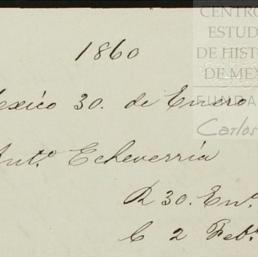 1860
México 30. de Enero
Antº. Echeverría
R 30. Enº.
C 2 Febº.
CENTRO
ESTUD
DE HISTO
DE MEX
FUNDA
Carlos